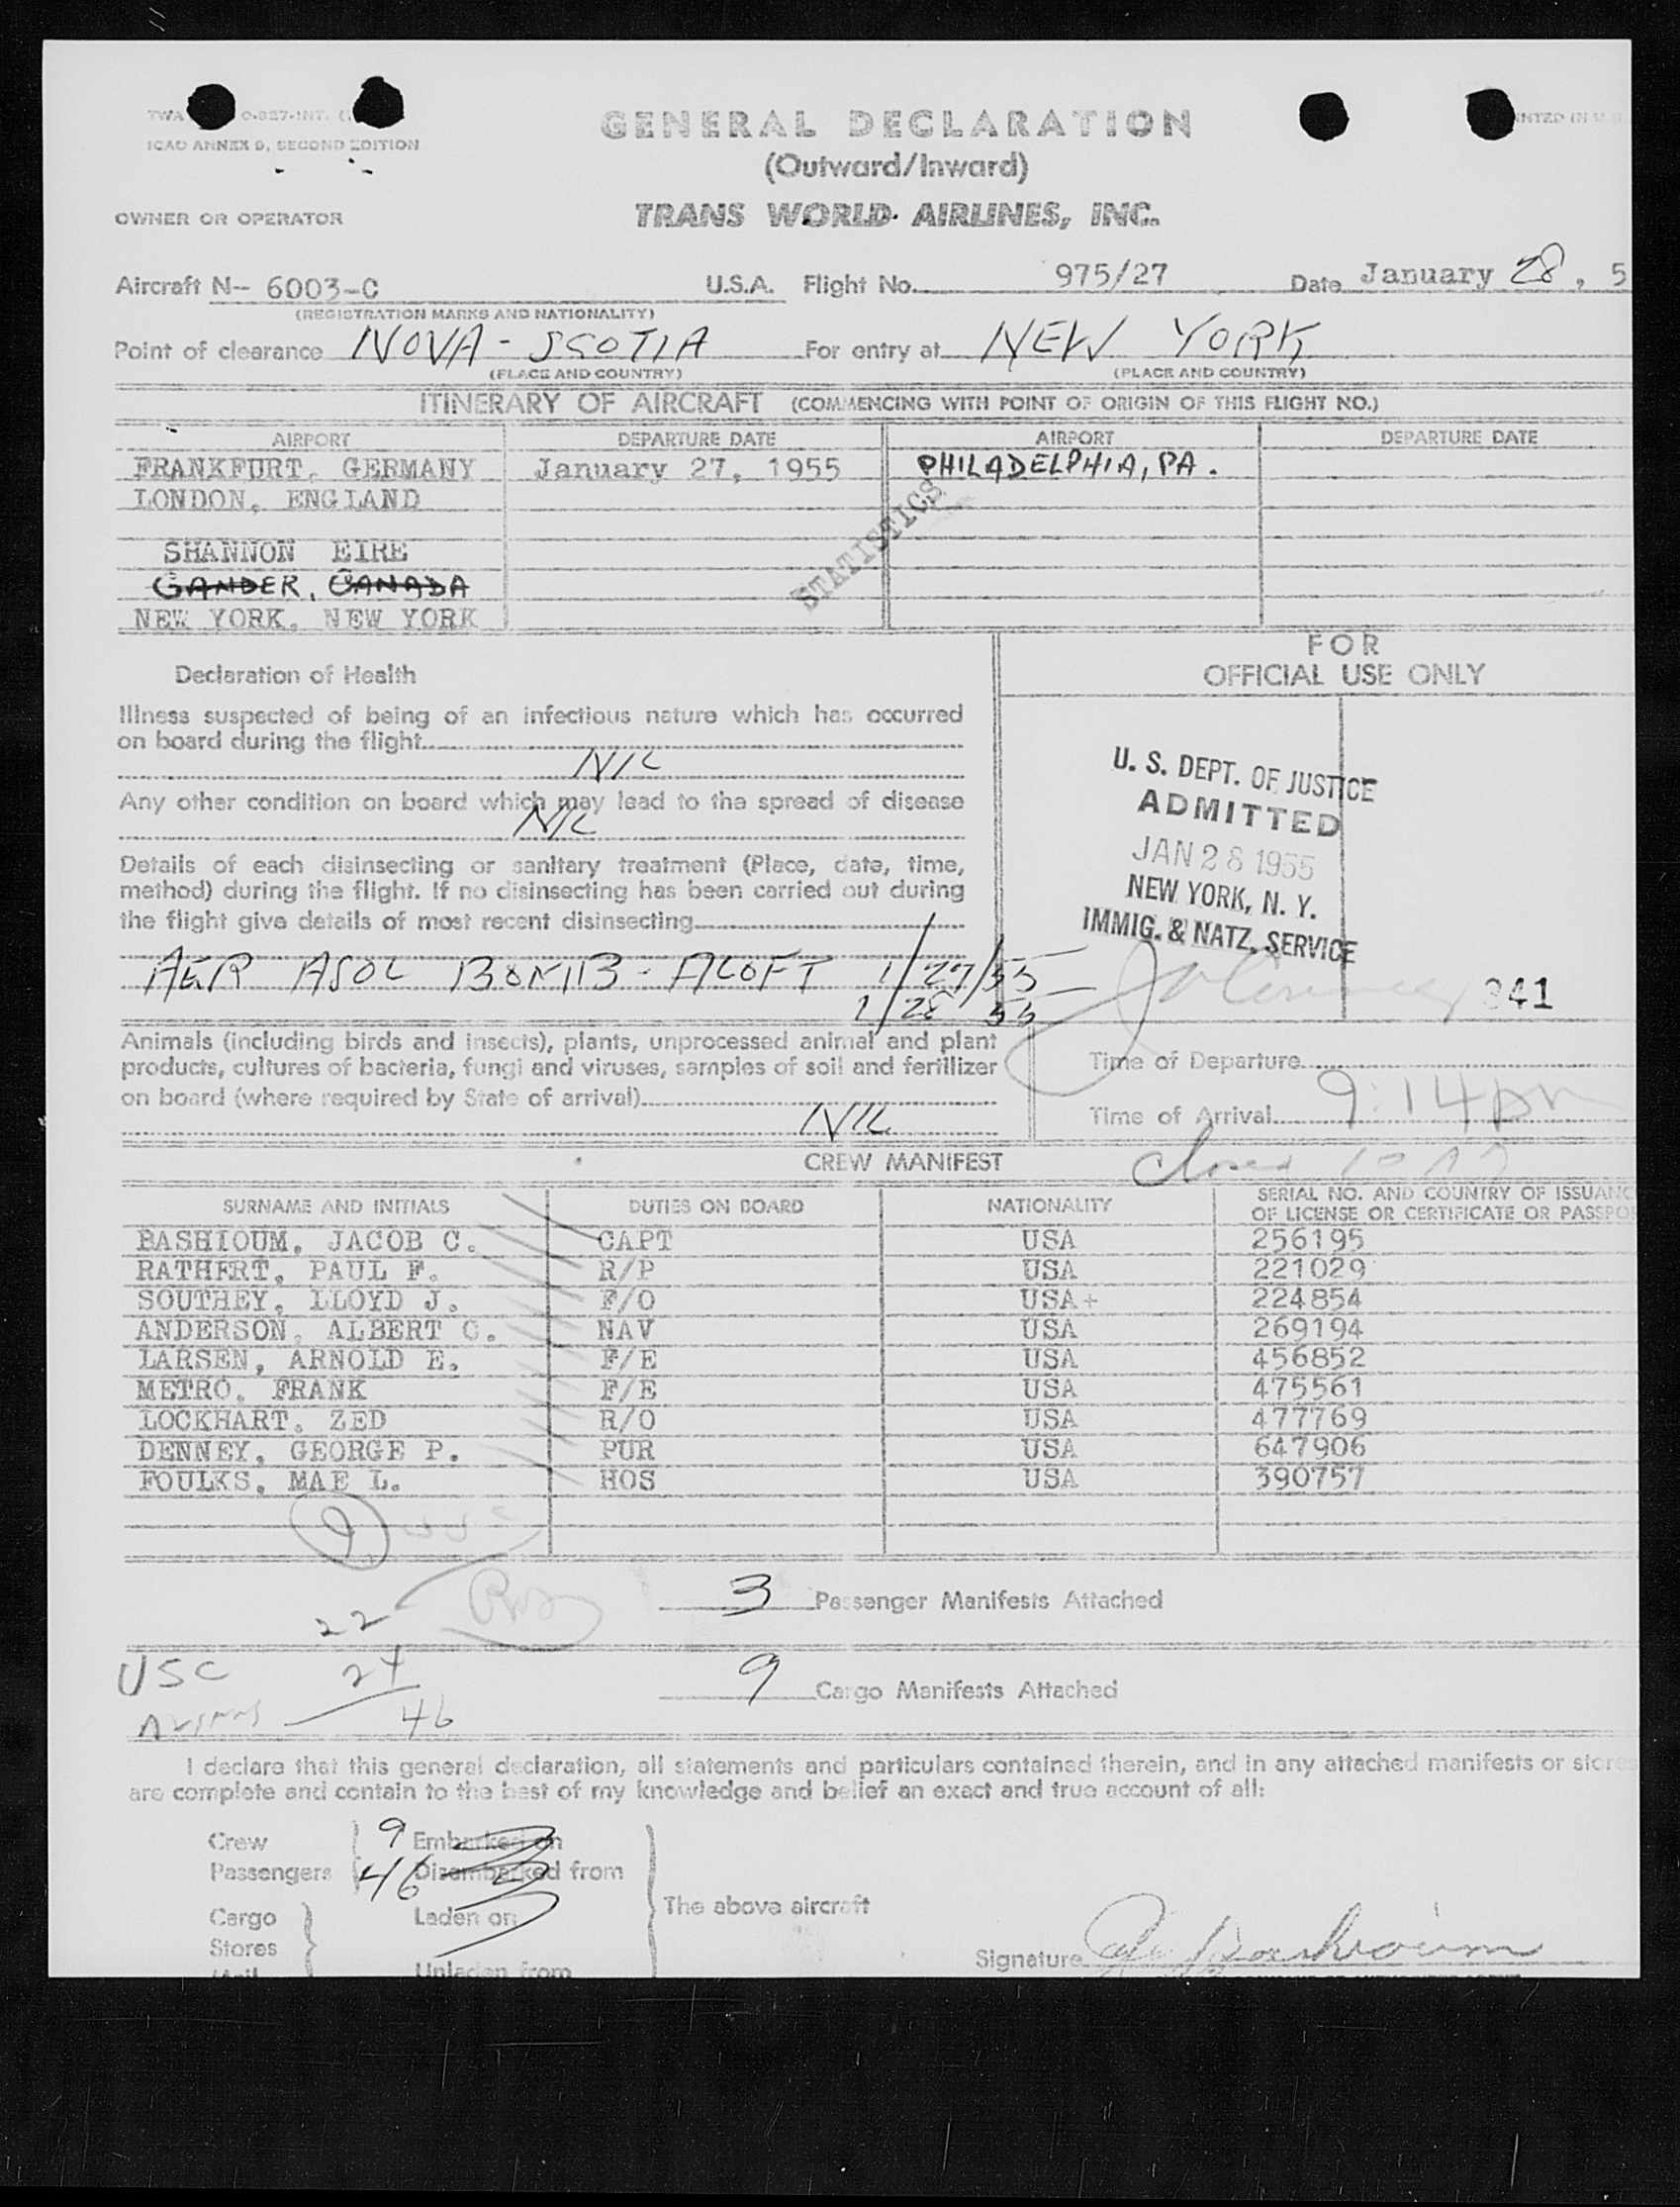 TWA 0-827-INT.
ICAO ANNEX 9, SECOND EDITION
GENERAL DECLARATION
(Outward/Inward)
OWNER OR OPERATOR TRANS WORLD AIRLINES, INC.
Aircraft N- 6003-C U.S.A. Flight No. 975/27 Date January 28, 5
(REGISTRATION MARKS AND NATIONALITY)
Point of clearance NOVA-SCOTIA For entry at NEW YORK
(PLACE AND COUNTRY) (PLACE AND COUNTRY)
ITINERARY OF AIRCRAFT (COMMENCING WITH POINT OF ORIGIN OF THIS FLIGHT NO.)
AIRPORT DEPARTURE DATE AIRPORT DEPARTURE DATE
FRANKFURT, GERMANY January 27, 1955 PHILADELPHIA, PA.
LONDON, ENGLAND
STATISTICS
SHANNON EIRE
GANDER, CANADA
NEW YORK, NEW YORK
FOR
OFFICIAL USE ONLY
Declaration of Health
Illness suspected of being of an infectious nature which has occurred
on board during the flight
NIL
Any other condition on board which may lead to the spread of disease
NIL
Details of each disinsecting or sanitary treatment (Place, date, time,
method) during the flight. If no disinsecting has been carried out during
the flight give details of most recent disinsecting
AER ASOL BOMB - ALOFT 1/27/55
1/28 55
U. S. DEPT. OF JUSTICE
ADMITTED
JAN 28 1955
NEW YORK, N. Y.
IMMIG. & NATZ. SERVICE
341
Animals (including birds and insects), plants, unprocessed animal and plant
products, cultures of bacteria, fungi and viruses, samples of soil and fertilizer
on board (where required by State of arrival)
NIL
Time of Departure
Time of Arrival 9:14 pm
CREW MANIFEST
SURNAME AND INITIALS DUTIES ON BOARD NATIONALITY SERIAL NO. AND COUNTRY OF ISSUANC
OF LICENSE OR CERTIFICATE OR PASSPO
BASHIOUM, JACOB C. CAPT USA 256195
RATHERT, PAUL F. R/P USA 221029
SOUTHEY, LLOYD J. F/O USA+ 224854
ANDERSON, ALBERT C. NAV USA 269194
LARSEN, ARNOLD E. F/E USA 456852
METRO, FRANK F/E USA 475561
LOCKHART, ZED R/O USA 477769
DENNEY, GEORGE P. PUR USA 647906
FOULKS, MAE L. HOS USA 390757
9
3 Passenger Manifests Attached
22
USC 24
9 Cargo Manifests Attached
46
I declare that this general declaration, all statements and particulars contained therein, and in any attached manifests or stores
are complete and contain to the best of my knowledge and belief an exact and true account of all:
Crew 9 Embarked on
Passengers 46 Disembarked from
The above aircraft
Cargo Laden on
Stores
Mail Unladen from
Signature